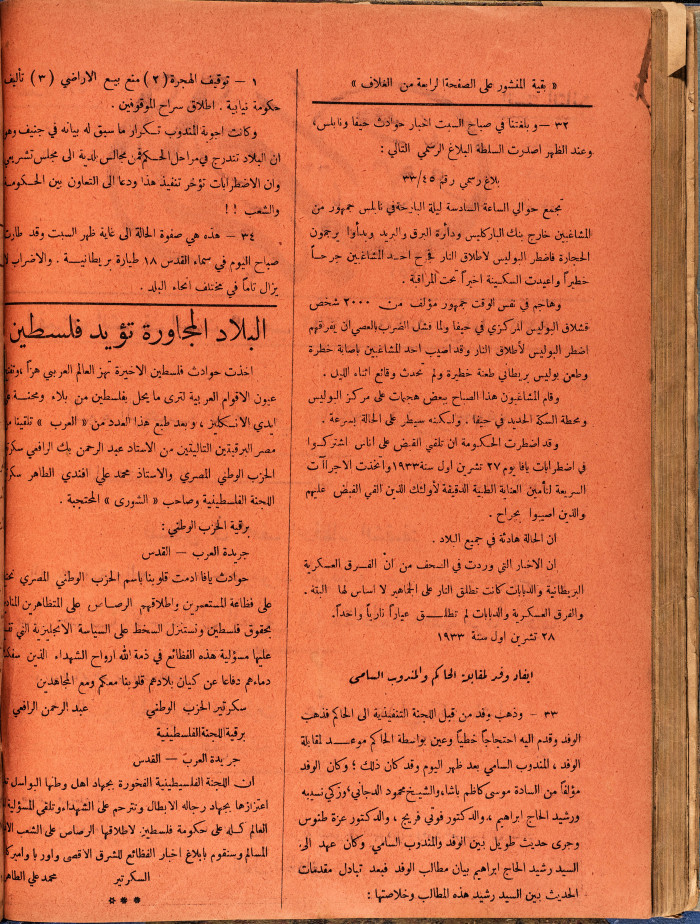 « بقية المنشور على الصفحة الرابعة من الغلاف »
٣٢ — وبلغتنا في صباح السبت اخبار حوادث حيفا ونابلس،
وعند الظهر اصدرت السلطة البلاغ الرسمي التالي :
بلاغ رسمي رقم ٣٣/٤٥
تجمع حوالي الساعة السادسة ليلة البارحة في نابلس جمهور من
المشاغبين خارج بنك الباركليس ودائرة البرق والبريد وبدأوا يرجمون
الحجارة فاضطر البوليس لاطلاق النار فجرح احد المشاغبين جرحاً
خطيراً واعيدت السكينة اخيراً تحت المراقبة .
وهاجم في نفس الوقت جمهور مؤلف من ٢٠٠٠ شخص
قشلاق البوليس المركزي في حيفا ولما فشل الضرب بالعصي ان يفرقهم
اضطر البوليس لأطلاق النار وقد اصيب احد المشاغبين باصابة خطرة
وطعن بوليس بريطاني طعنة خطيرة ولم تحدث وقائع اثناء الليل .
وقام المشاغبون هذا الصباح ببعض هجمات على مركز البوليس
ومحطة السكة الحديد في حيفا . ولكنه سيطر على الحالة بسرعة .
وقد اضطرت الحكومة ان تلقي القبض على اناس اشتركوا
في اضطرابات يافا يوم ٢٧ تشرين اول سنة ١٩٣٣ واتخذت الاجراآت
السريعة لتأمين العناية الطبية الدقيقة لأولئك الذين القي القبض عليهم
والذين اصيبوا بجراح .
ان الحالة هادئة في جميع البلاد .
ان الاخبار التي وردت في الصحف من ان الفرق العسكرية
البريطانية والدبابات كانت تطلق النار على الجماهير لا اساس لها البتة .
والفرق العسكرية والدبابات لم تطلق عياراً نارياً واحداً.
٢٨ تشرين اول سنة ١٩٣٣
ايفاد وفد لمقابلة الحاكم والمندوب السامي
٣٣ — وذهب وفد من قبل اللجنة التنفيذية الى الحاكم فذهب
الوفد وقدم اليه احتجاجاً خطياً وعين بواسطة الحاكم موعد لمقابلة
الوفد ، المندوب السامي بعد ظهر اليوم وقد كان ذلك ؛ وكان الوفد
مؤلفاً من السادة موسى كاظم باشا، والشيخ محمود الدجاني؛ وزكي نسيبه
ورشيد الحاج ابراهيم ، والدكتور فوتي فريج ، والدكتور عزة طنوس
وجرى حديث طويل بين الوفد والمندوب السامي وكان عهد الى
السيد رشيد الحاج ابراهيم بيان مطالب الوفد فبعد تبادل مقدمات
الحديث بين السيد رشيد هذه المطالب وخلاصتها :
١ — توقيف الهجرة (٢) منع بيع الاراضي (٣) تأليف
حكومة نيابية . اطلاق سراح الموقوفين .
وكانت اجوبة المندوب تكرار ما سبق له بيانه في جنيف وهو
ان البلاد تتدرج في مراحل الحكم فمن مجالس بلدية الى مجلس تشريعي
وان الاضطرابات تؤخر تنفيذ هذا ودعا الى التعاون بين الحكومة
والشعب !!
٣٤ — هذه هي صفوة الحالة الى غاية ظهر السبت وقد طارت
صباح اليوم في سماء القدس ١٨ طيارة بريطانية . والاضراب لا
يزال تاماً في مختلف انحاء البلد .
البلاد المجاورة تؤيد فلسطين
اخذت حوادث فلسطين الاخيرة تهز العالم العربي هزاً
عيون الاقوام العربية لترى ما يحل بفلسطين من بلاء ومحنة
ايدي الانكليز ، وبعد طبع هذا العدد من « العرب » تلقينا
مصر البرقيتين التاليتين من الاستاذ عبد الرحمن بك الرافعي
الحزب الوطني المصري والاستاذ محمد علي افندي الطاهر
اللجنة الفلسطينية وصاحب « الشورى » المحتجبة .
برقية الحزب الوطني :
جريدة العرب — القدس
حوادث يافا ادمت قلوبنا باسم الحزب الوطني المصري
على فظاعة المستعمرين واطلاقهم الرصاص على المتظاهرين
بحقوق فلسطين ونستنزل السخط على السياسة الانجليزية التي
عليها مسؤلية هذه الفظائع في ذمة الله ارواح الشهداء الذين
دماءهم دفاعا عن كيان بلادهم قلوبنا معكم ومع المجاهدين
سكرتير الحزب الوطني عبد الرحمن الرافعي
برقية اللجنة الفلسطينية
جريدة العرب — القدس
ان اللجنة الفلسطينية الفخورة بجهاد اهل وطنها البواسل
اعتزازها بجهاد رجاله الابطال وتترحم على الشهداء وتلقي المسؤلية
العالم كله على حكومة فلسطين لاطلاقها الرصاص على الشعب
المسالم وسنقوم بابلاغ اخبار الفظائع للشرق الاقصى واوربا
السكرتير محمد علي الطاهر
***